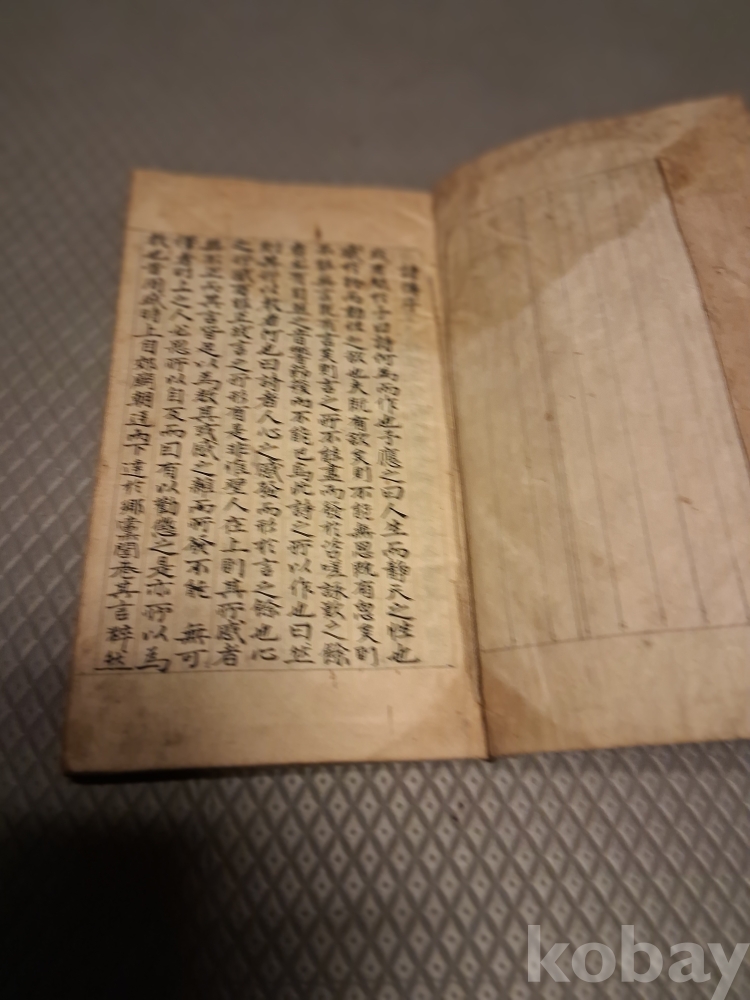 詩傳序
或有問於予曰詩何爲而作也予應之曰人生而靜天之性也
感於物而動性之欲也夫旣有欲矣則不能無思旣有思矣則
不能無言旣有言矣則言之所不能盡而發於咨嗟詠歎之餘
者必有自然之音響節族而不能已焉此詩之所以作也曰然
則其所以敎者何也曰詩者人心之感物而形於言之餘也心
之所感有邪正故言之所形有是非惟聖人在上則其所感者
無不正而其言皆足以爲敎其或感之雜而所發不能 無可
擇者則上之人必思所以自反而因有以勸懲之是亦所以爲
敎也昔周盛時上自郊廟朝廷而下達於鄕黨閭巷其言粹然
kobay